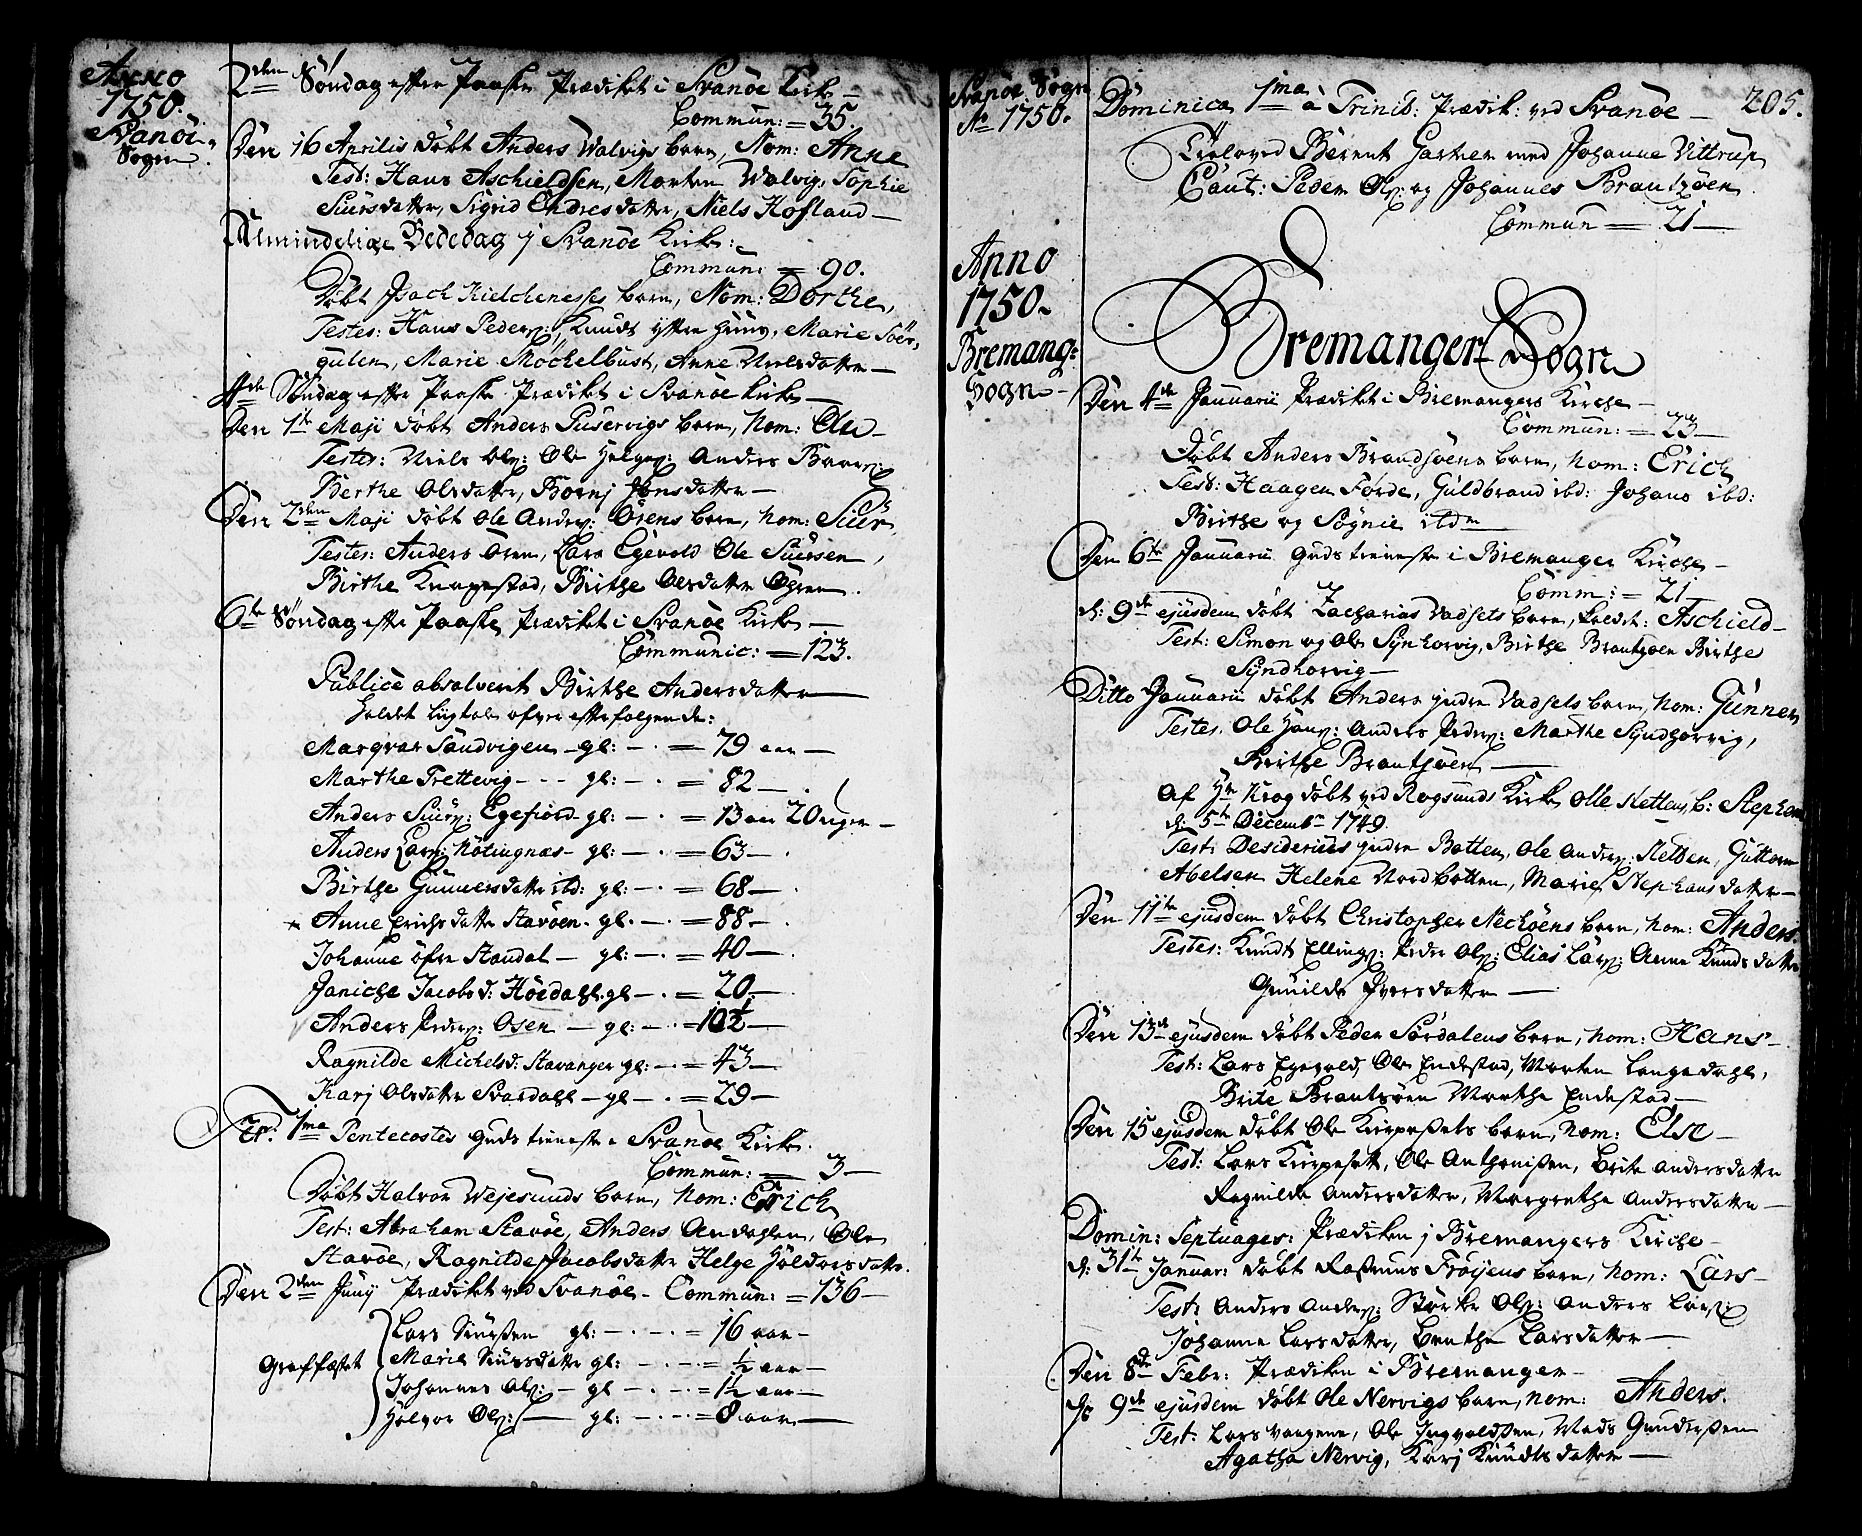 Anno
1750.
Svanöe
Sogn.
2den Søndag efter Paaske Prædiket i Svanöe Kirke —
Commun: = 35.
Den 16 Aprilis døbt Anders Walvigs barn, Nom: Anne
Test: Hans Aschieldsen, Morten Walvig, Sophie
Siursdatter, Sigrid Endresdatter, Niels Hofland —
Almindelige Bededag j Svanöe Kirke:
Commun: = 90.
Døbt Isach barn, Nom: Dorthe,
Testes: Hans Peders: Knudt yttre Huus, Marie Söer-
gulen, Marie Möchelbust, Anne Nielsdatter —
4de Søndag efter Paaske Prædiket i Svanöe Kirke —
Den 1te Maji døbt Anders Puservigs barn, Nom: Ole —
Testes: Niels Ols: Ole Anders
Berthe Olsdatter, Bornj Jonsdatter —
Den 2den Maji døbt Ole Anders: Örens barn, Nom: Siur
Testes: Anders Ören, Lars Egevold Ole Siursen,
Birthe Knapestad, Birthe Olsdatter Ören.
6te Søndag efter Paaske Prædiket i Svanöe Kirke —
Communic: = 123.
Publice absolverit Birthe Andersdatter —
holdet liigtale ofver efterfølgende:
Margrar Sandvigen — gl: — . = 79 aar —
Marthe Trettevig - - - gl: — . = 82 —.
Anders Siurs: Egefiord gl: — . = 13 aar 20 uger —
Anders Lars: Nötingnæs — gl: — . = 63 —.
Birthe Gunnersdatter ibd: gl: — . = 68 —.
Anne Erichsdatter Stavöen. gl. — . = 88 —.
Johanne öfre Standal — gl: — . = 40 —.
Janiche Jacobsd: Hördahl gl — . = 20 —.
Anders Peders: Osen — gl: — . = 10½ —
Ragnilde Michelsd: Stavanger gl: — . = 43 —
Karj Olsdatter Svardahl — gl — . = 29 —
Fer. 1ma Pentecostes Guds tieneste i Svanöe Kirke.
Commun: = 3 —
Døbt Halvor Wejesunds barn, Nom: Erich
Test: Abraham Stavöe, Anders Andahlen, Ole
Stavöe, Ragnilde Jacobsdatter Helge Halvorsdatter.
Den 2den Junij Prædiket ved Svanöe — Commun: = 136 —
Graffæstet
Lars Siursen gl: — . — . = 16 aar —
Marie Siursdatter gl: — . — . = ½ aar —
Johannes Ols: — gl — . — . = 1½ aar —
Halvor Ols: — gl: — . — . = 8 aar —
Svanöe Sogn
Ao 1750.
205.
Dominica 1ma à Trinit: Prædik: ved Svanöe —
Troloved Berent Gartner med Johanne Vittrup
Caut: Peder Ols: og Johannes Brantzöen.
Commun = 21 —
Anno
1750.
Bremang:
Sogn —
Bremanger Sogn
Den 4de Januarii Prædiket i Bremangers Kirche —
Commun: = 23 —
Døbt Anders Brandsöens barn, Nom: Erich
Test: Haagen Förde, Guldbrand ibd: Johans ibd:
Birthe og Sögnie ibdm
Den 6te Januarii Guds tieneste i Bremanger Kirche —
Comm: = 21 —
d: 9de ejusdem døbt Zacharias Vadsets barn, kaldet: Aschield —
Test: Simon og Ole Synhorvig, Birthe Brantzöen Birthe
Syndhorvig —
Ditto Januarii døbt Anders yndre Vadsets barn, Nom: Gunner
Testes. Ole Hans: Anders Peders: Marthe Syndhorvig,
Birthe Brantzöen —
Af Hr Krog døbt ved Rogsunds Kirke Olle Kettens b: Stephen
d: 5te Decembr 1749.
Test: Desiderius yndre Botten, Ole Anders: Ketten, Guttorm
Abelsen Helene Nordbotten, Marie Stephansdatter —
Den 11te ejusdem døbt Christopher Nechöens barn, Nom: Anders.
Testes: Knudt Ellings: Peder Ols: Elias Lars: Anne Knudsdatter
Gunilde Iversdatter —
Den 13de ejusdem døbt Peder Sördalens barn, Nom: Hans —
Test: Lars Egevold, Ole Endestad, Morten Langedahl,
Brite Brantsöen Marthe Endestad —
Den 15 ejusdem døbt Ole Kirpesets barn, Nom: Else —
Test: Lars Kirpesett, Ole Anthonissen, Brite Andersdatter
Ragnilde Andersdatter, Margrethe Andersdatter —
Domin: Septuages: Prædiken j Bremangers Kirche —
d: 31te Januar: døbt Rasmus Fröyens barn, Nom: Lars —
Test: Anders Anders: Störker Ols: Anders Lars:
Johanne Larsdatter, Berthe Larsdatter —
Den 8de Febr: Prædiken i Bremanger —
d: 9de ejusdem døbt Ole Nervigs barn, Nom: Anders.
Test: Lars Vaagene, Ole Ingvoldsen, Mads Gundersen
Agatha Nervig, Karj Knudtsdatter —